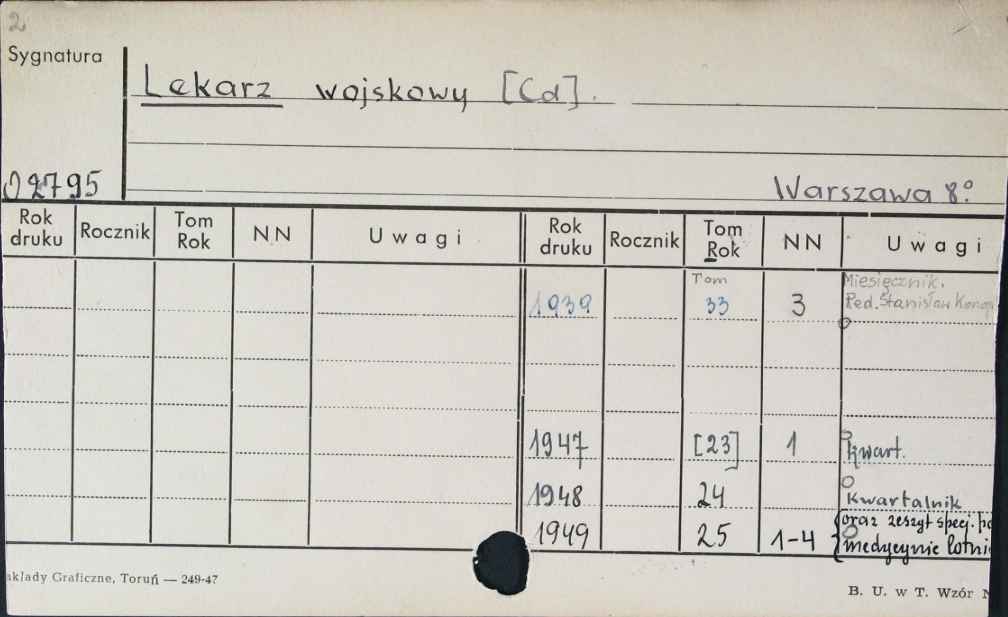 2
Sygnatura
Lekarz wojskowy [Cd].
02795
Warszawa 8°
Rok druku Rocznik Tom Rok NN Uwagi Rok druku Rocznik Tom Rok NN Uwagi
Tom Miesięcznik.
1939 33 3 Red. Stanisław
1947 [23] 1 kwart.
1948 24 Kwartalnik
oraz zeszyt specj.
1949 25 1-4 medycynie
akłady Graficzne, Toruń — 249-47
B. U. w T. Wzór